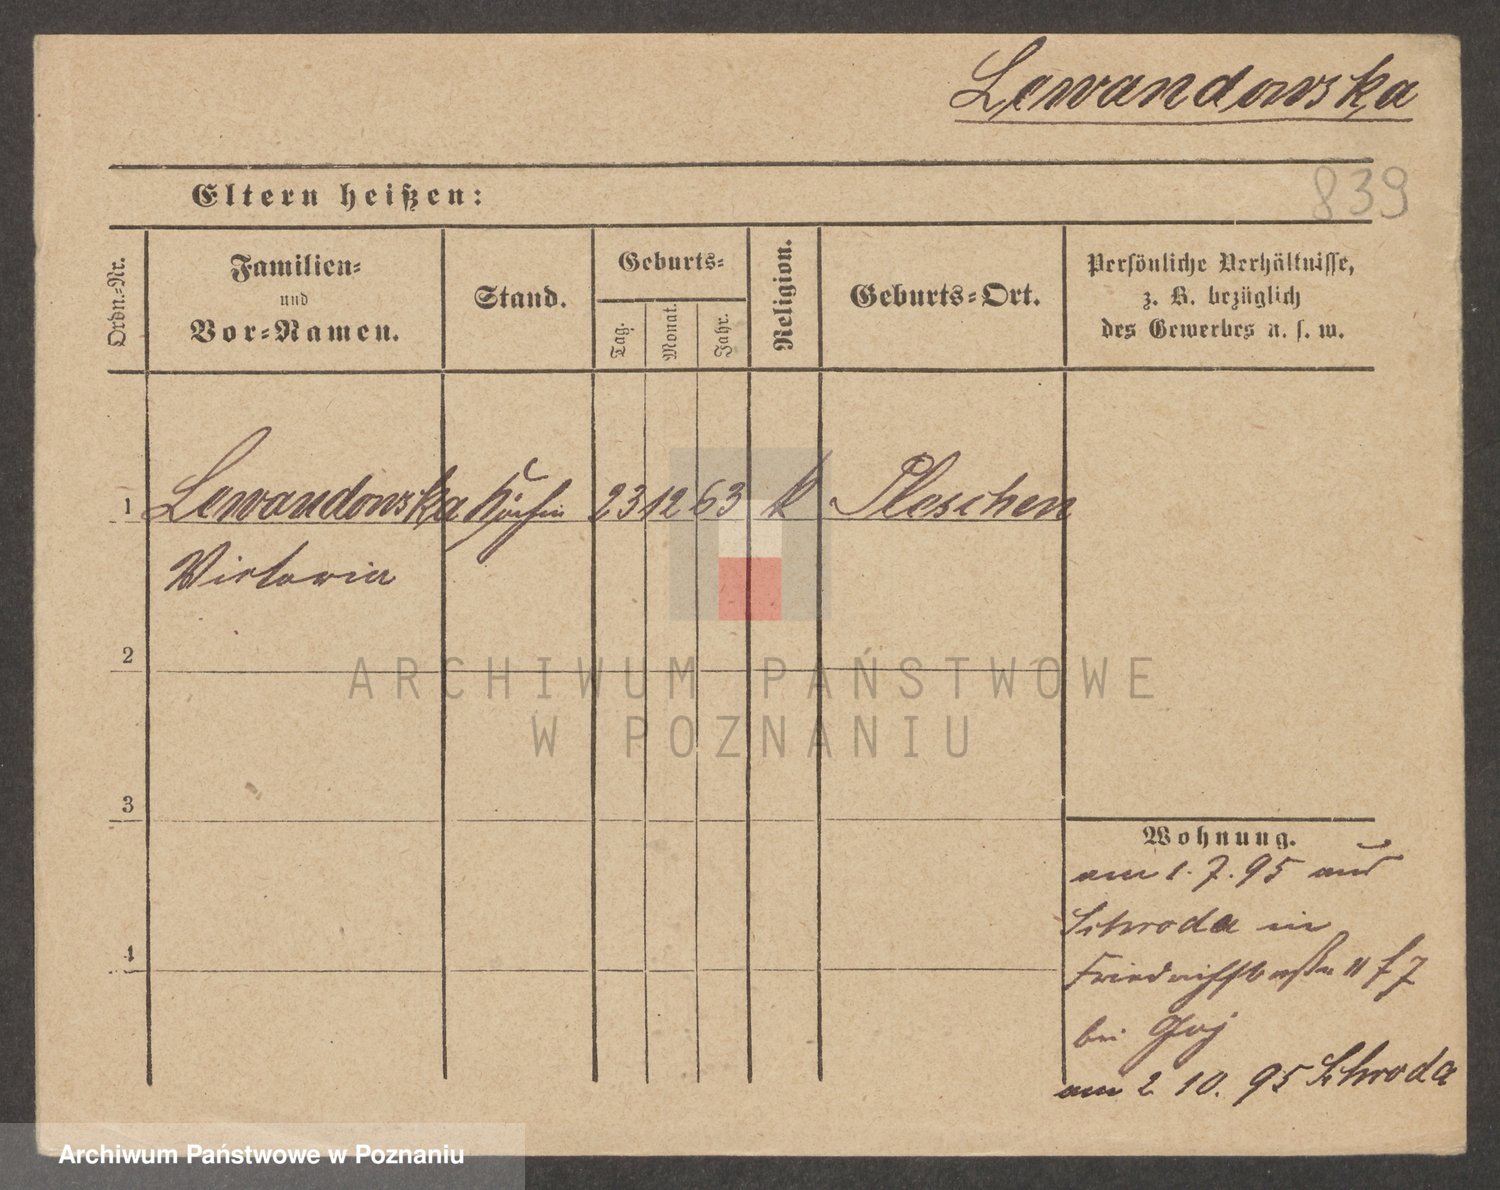 Lewandowska
839
Eltern heißen:
Ordn.-Nr.
Familien-
und
Vor-Namen.
Stand.
Geburts-
Tag.
Monat.
Jahr.
Religion.
Geburts-Ort.
Persönliche Verhältnisse,
z. B. bezüglich
des Gewerbes u. s. w.
1 Lewandowska Köchin 23 12 63 k Pleschen
Victoria
2
3
4
Wohnung.
am 1.7.95 aus
Schroda in
Friedrichstraße 11
bei
am 2 10. 95 Schroda
ARCHIWUM PAŃSTWOWE
W POZNANIU
Archiwum Państwowe w Poznaniu